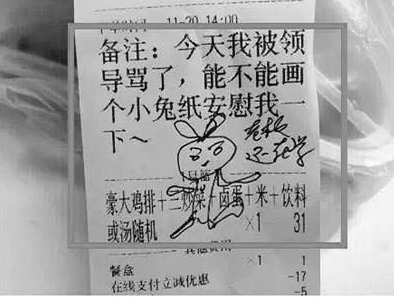 11-20 14:00
备注：今天我被领
导骂了，能不能画
个小兔纸安慰我一
下~
还在学
豪大鸡排+三炒菜+卤蛋+米+饮料
或汤随机 ×1 31
其他费用
餐盒 ×1 1
在线支付立减优惠 -17
-5